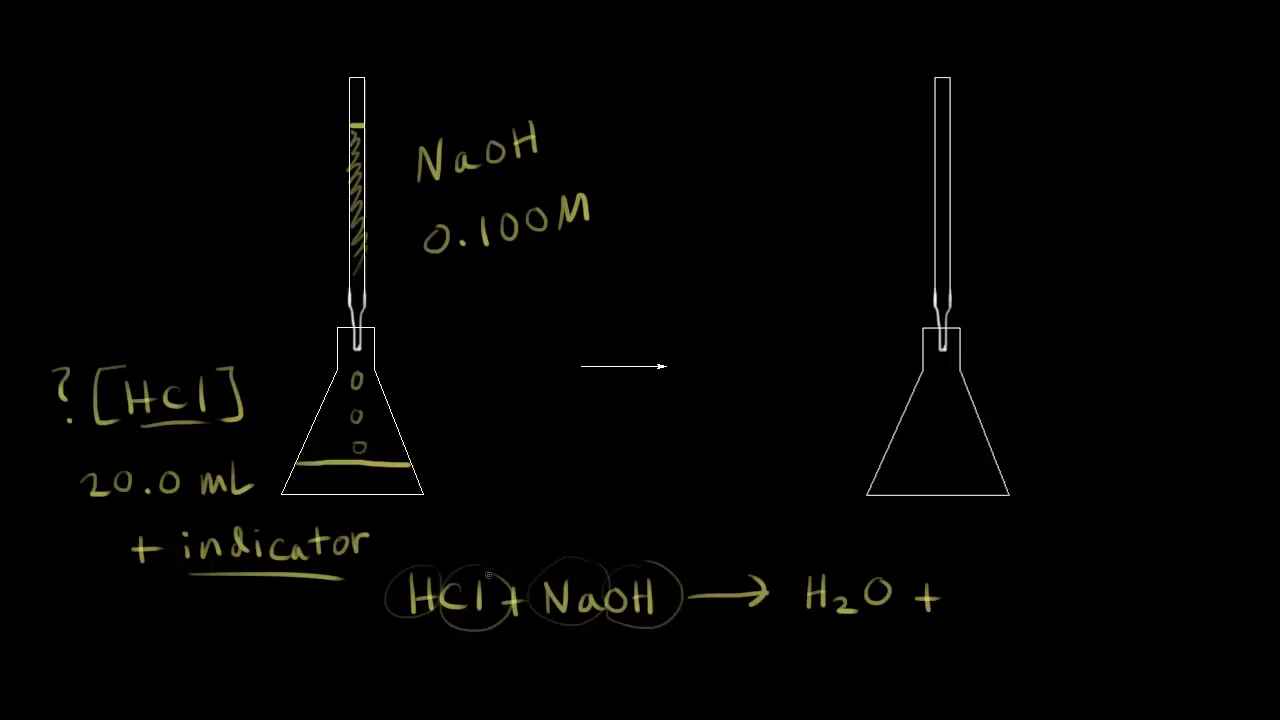 NaOH
0.100M
? [HCl]
20.0 mL
+ indicator
HCl + NaOH → H₂O +